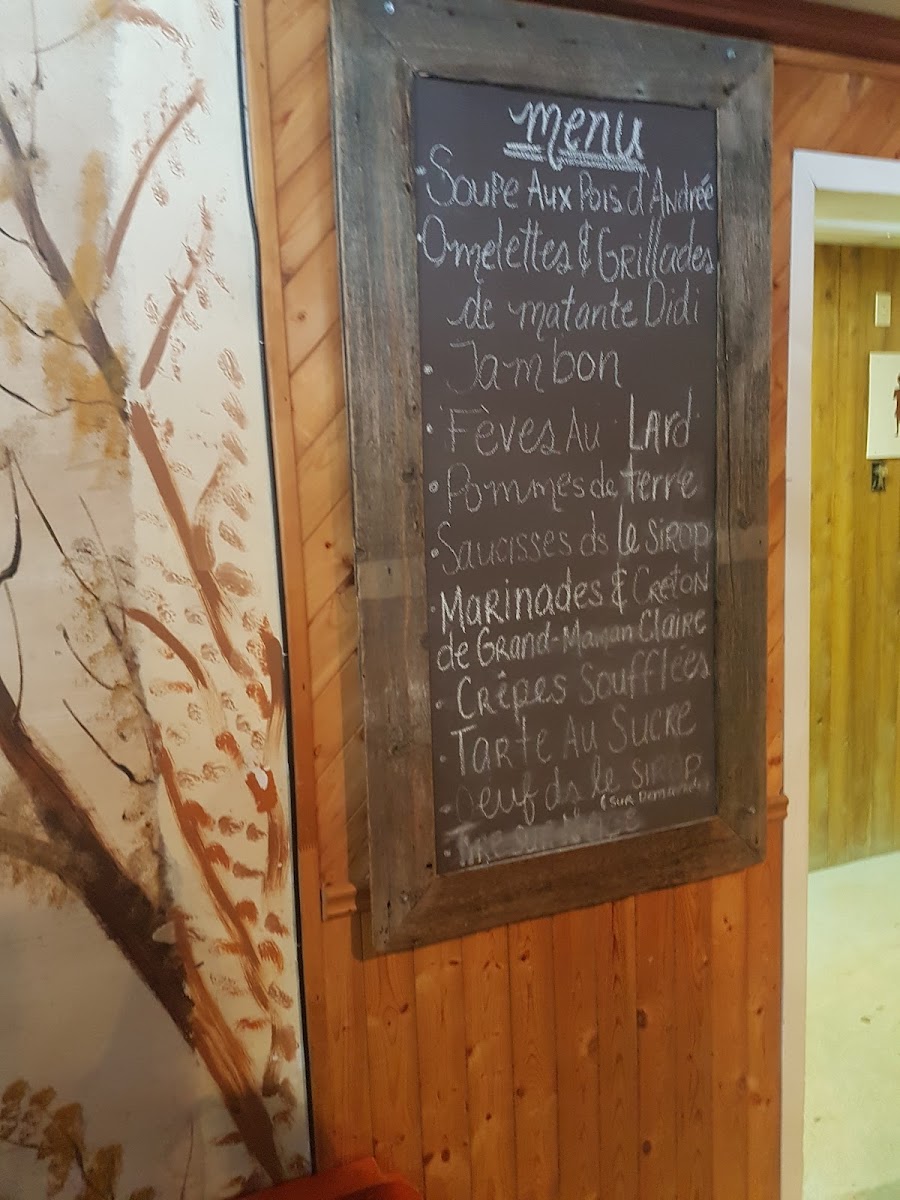 menu
• Soupe Aux Pois d'Andrée
• Omelettes & Grillades
de matante Didi
• Jambon
• Fèves Au Lard
• Pommes de terre
• Saucisses ds le sirop
• Marinades & Creton
de Grand-Maman Claire
• Crêpes Soufflées
• Tarte Au Sucre
• Oeuf ds le sirop
(sur Demande)
• Tire sur Neige